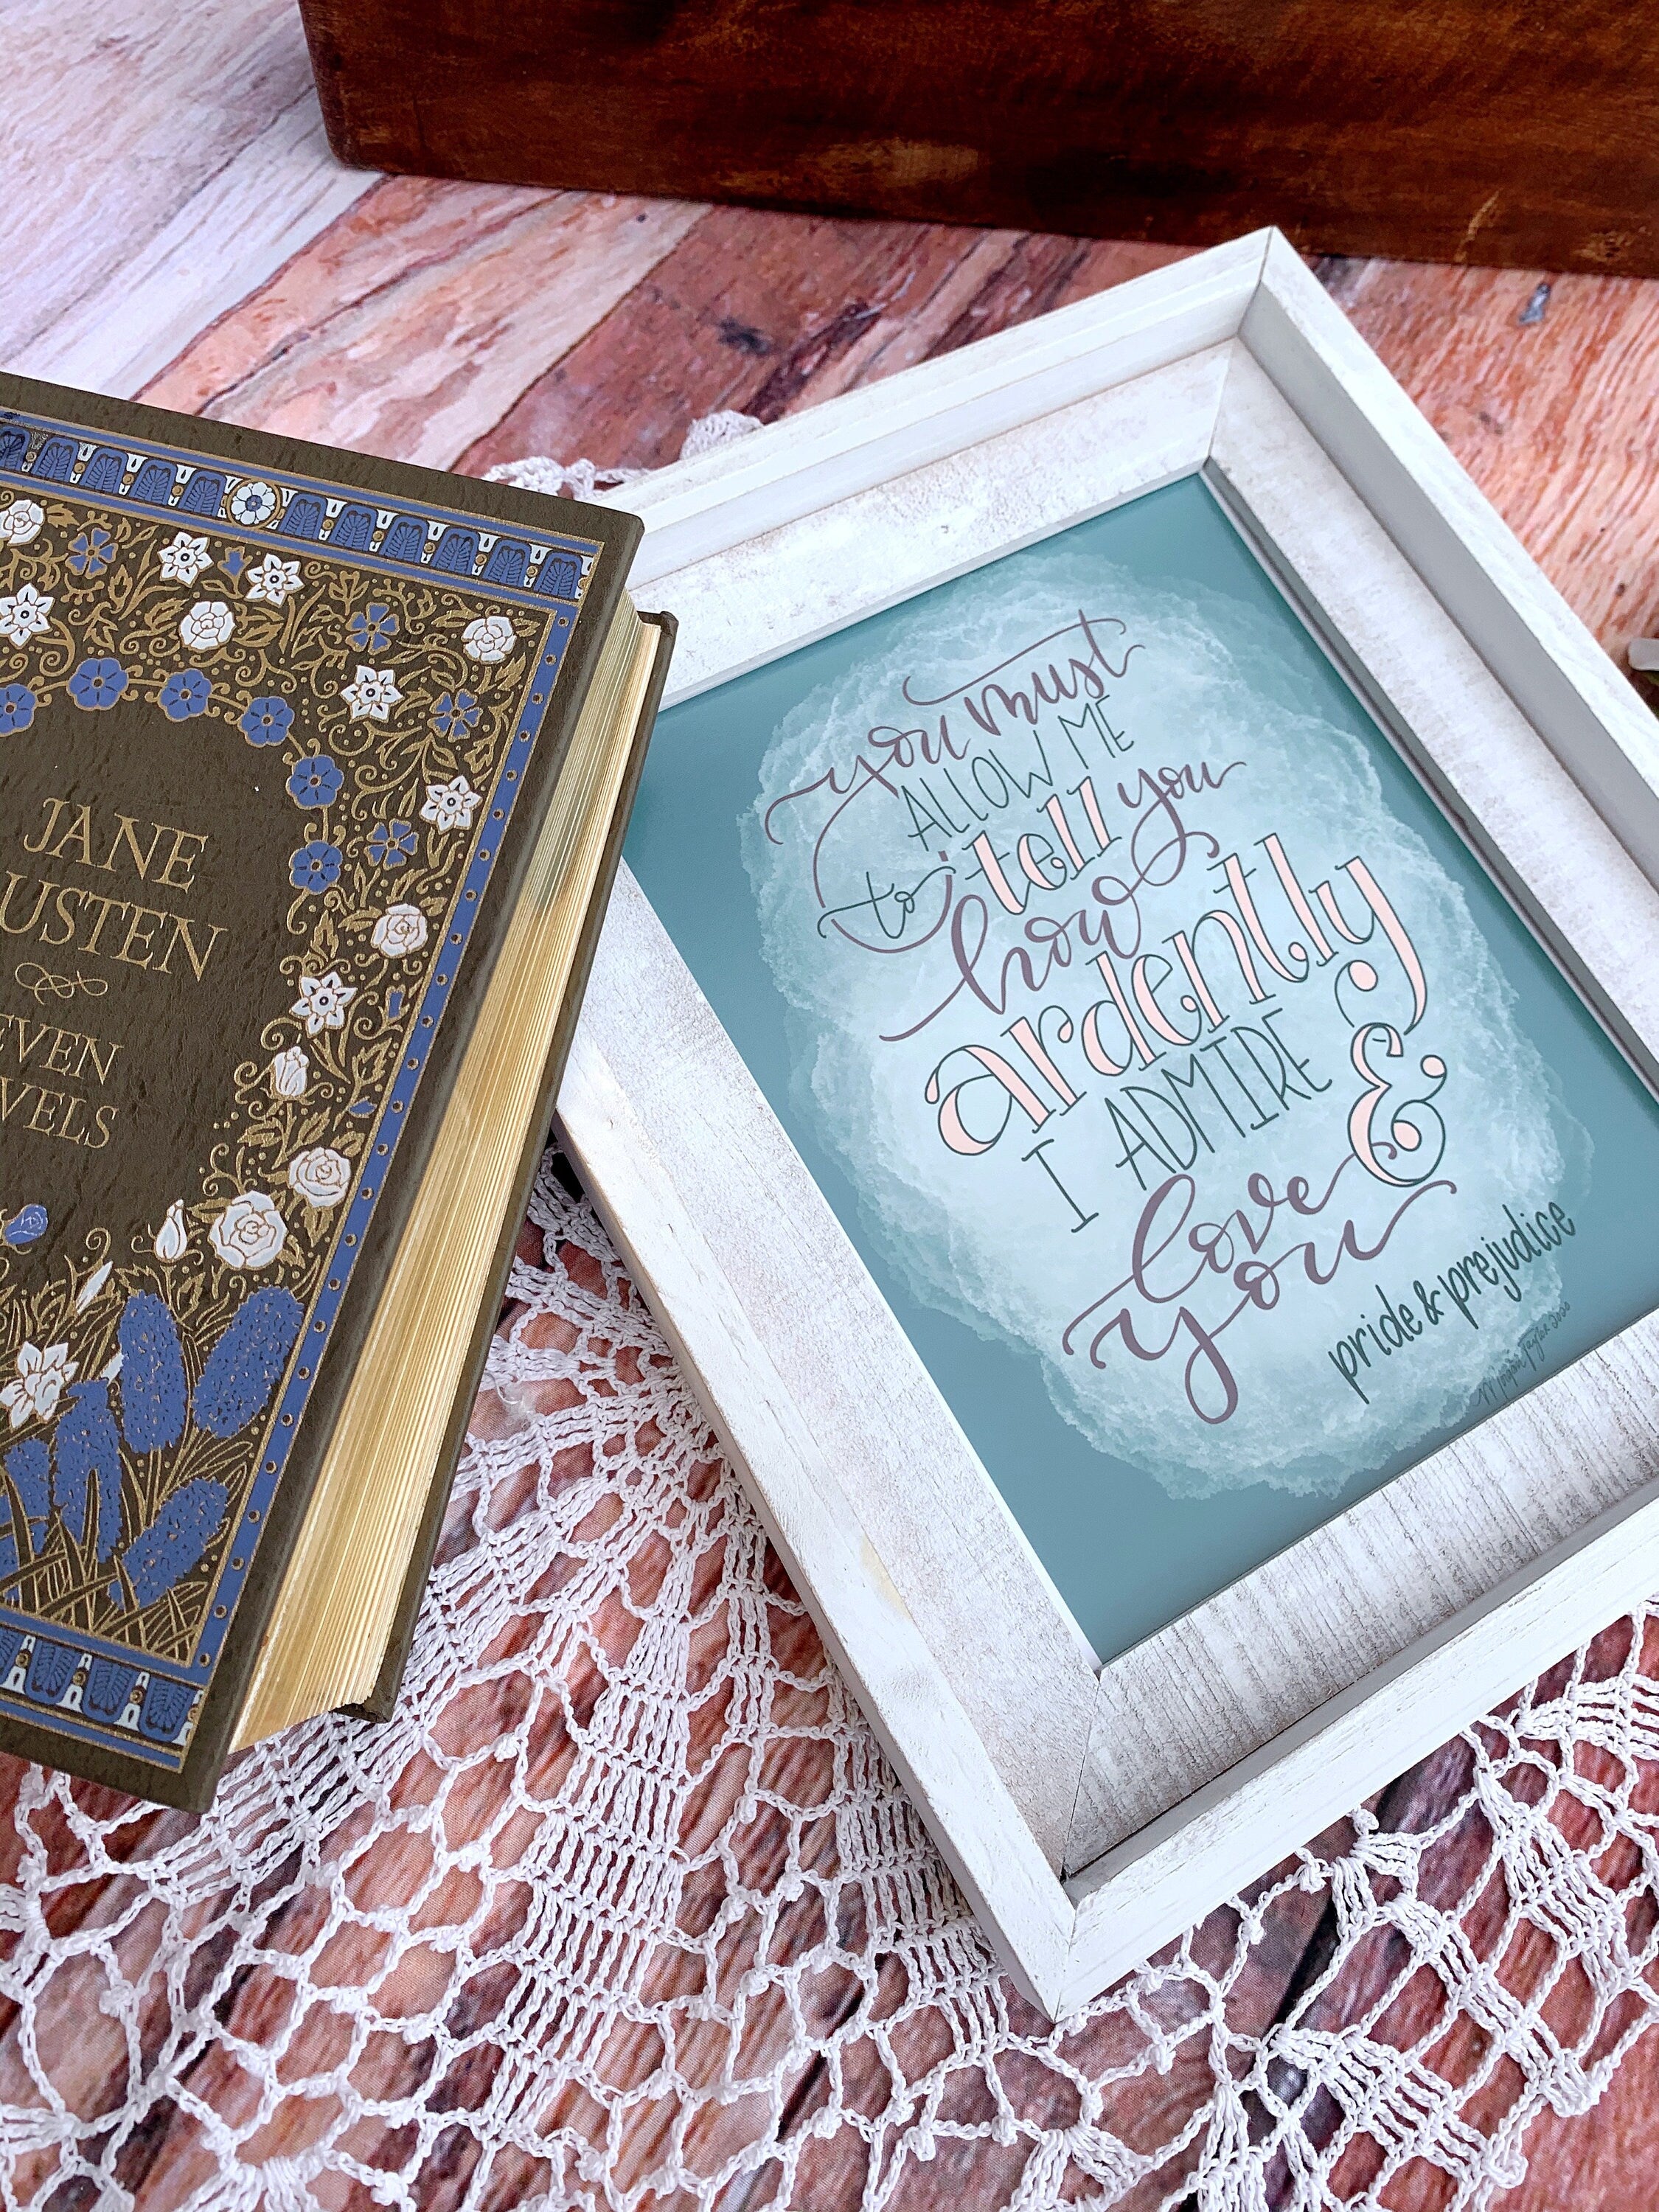 JANE
USTEN
EVEN
VELS
you must
ALLOW ME
to tell you
how
ardently
I ADMIRE &
love
you
pride & prejudice
Morgan Taylor 2020